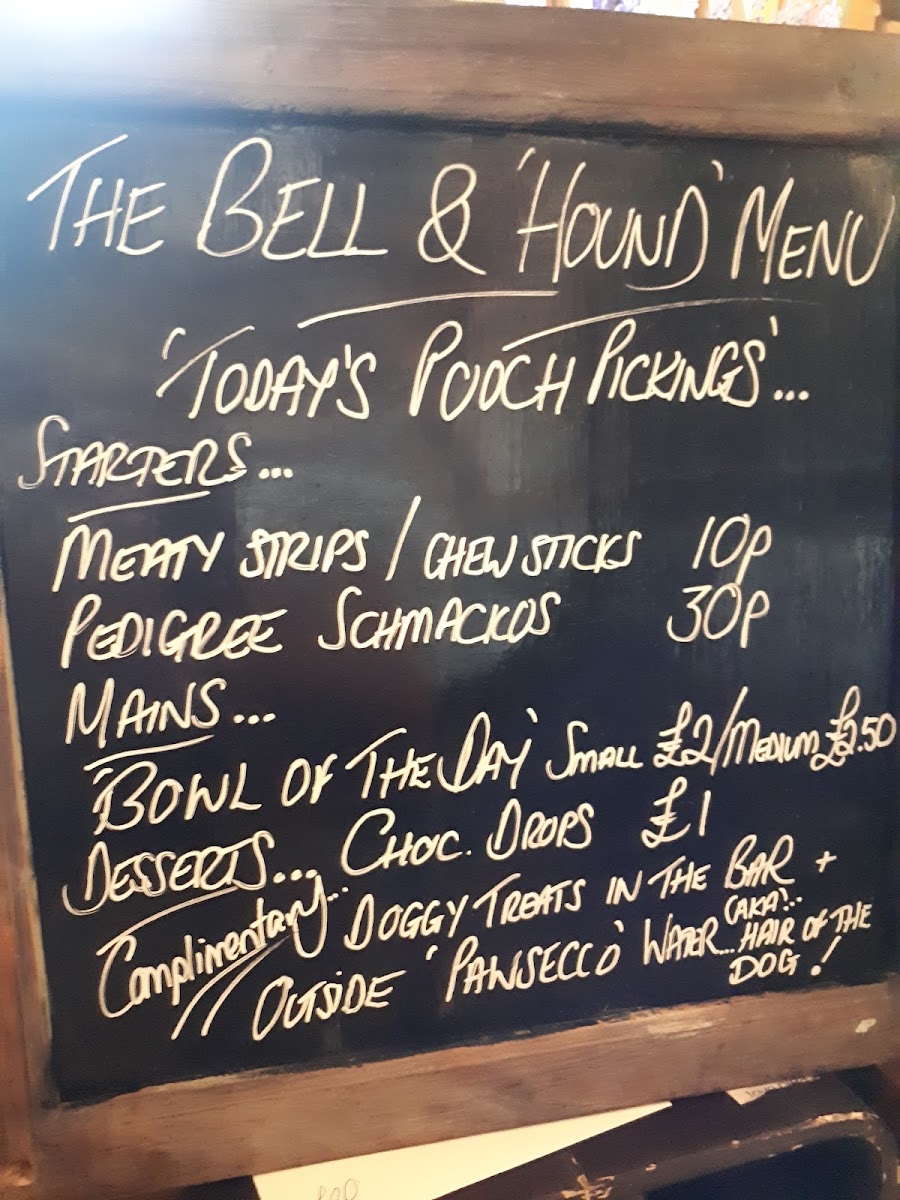 THE BELL & 'HOUND' MENU
'TODAY'S POOCH PICKINGS'...
STARTERS...
MEATY STRIPS / CHEW STICKS 10p
PEDIGREE SCHMACKOS 30p
MAINS...
'BOWL OF THE DAY' SMALL £2/MEDIUM £2.50
DESSERTS... CHOC. DROPS £1
Complimentary... DOGGY TREATS IN THE BAR +
OUTSIDE 'PAWSECCO' WATER... (AKA)... HAIR OF THE
DOG!